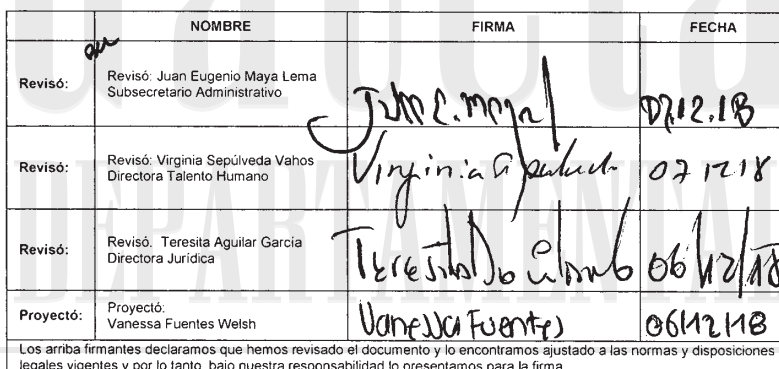 NOMBRE FIRMA FECHA
Revisó: Revisó: Juan Eugenio Maya Lema
Subsecretario Administrativo
Juan E. Maya L 07.12.18
Revisó: Revisó: Virginia Sepúlveda Vahos
Directora Talento Humano
Virginia Sepulveda 07 12 18
Revisó: Revisó. Teresita Aguilar García
Directora Jurídica
Teresita 06/12/18
Proyectó: Proyectó:
Vanessa Fuentes Welsh
Vanessa Fuentes 06/12/18
Los arriba firmantes declaramos que hemos revisado el documento y lo encontramos ajustado a las normas y disposiciones
legales vigentes y por lo tanto, bajo nuestra responsabilidad lo presentamos para la firma.
DEPARTAMENTAL